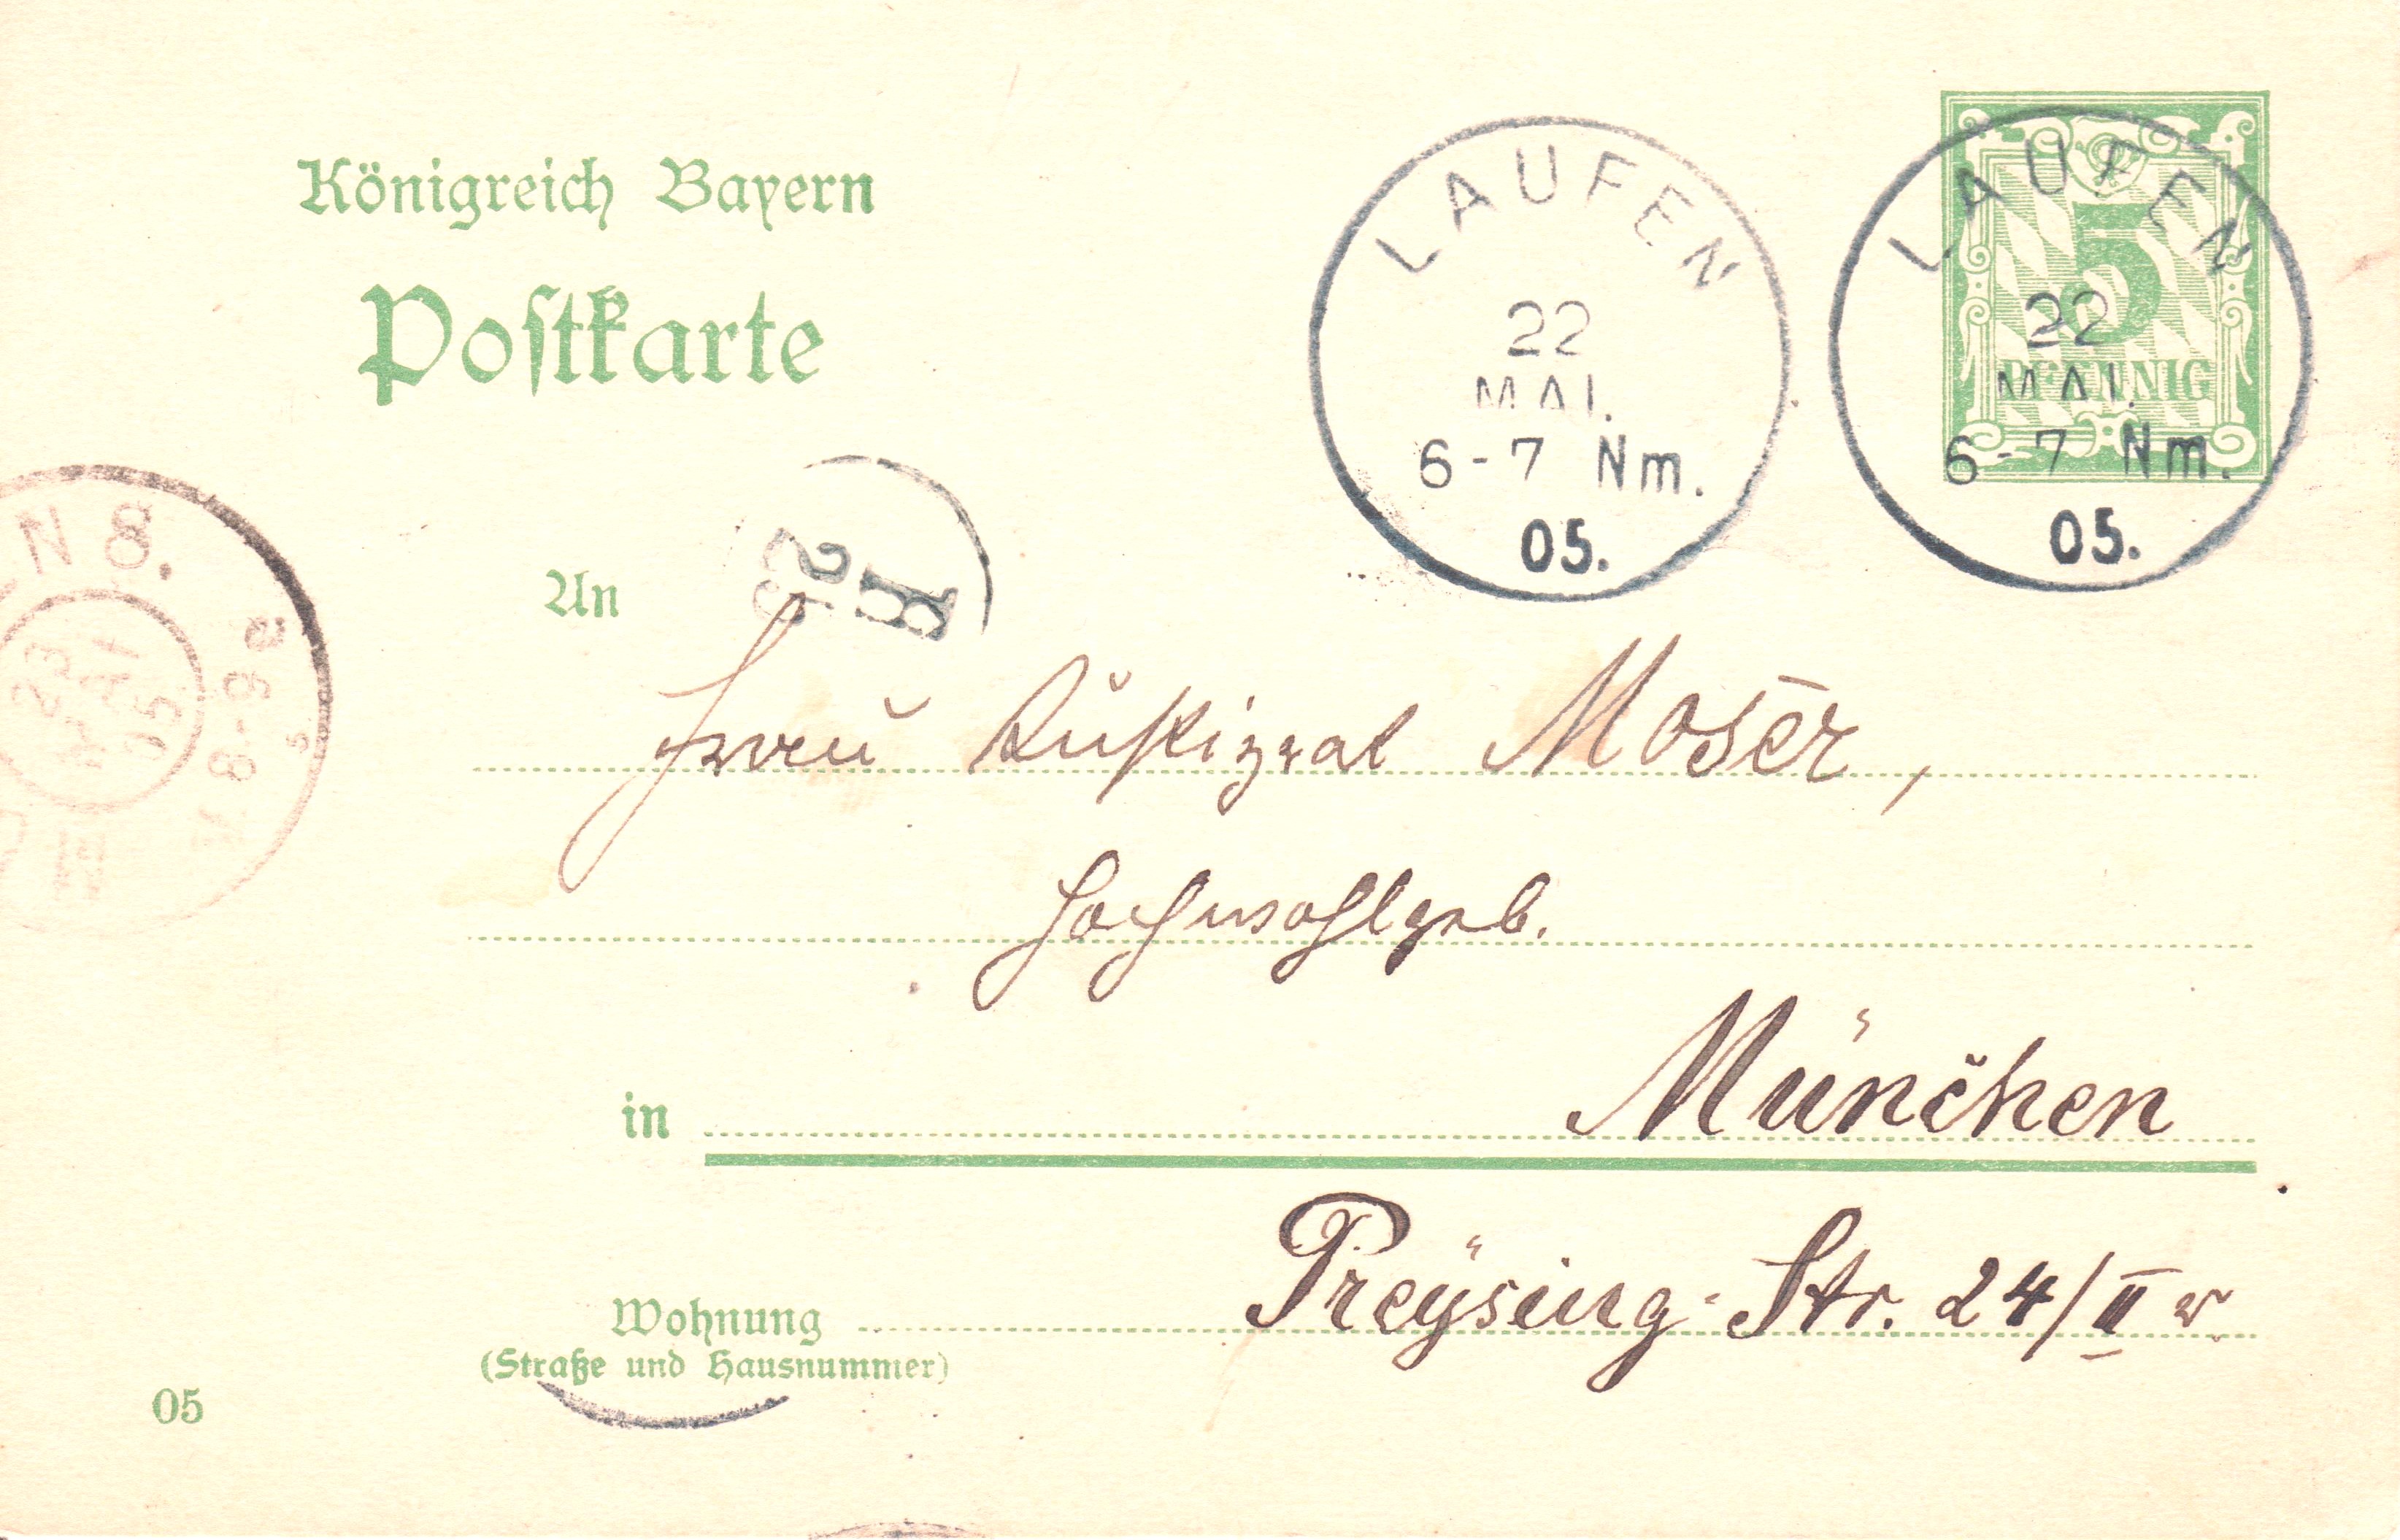 Königreich Bayern
Postkarte
LAUFEN
22
MAI.
6-7 Nm.
05.
LAUFEN
22
MAI.
6-7 Nm.
05.
5
PFENNIG
N 8.
23
MAI
05
8-9
An
Frau Justizrat Moser,
Hochwohlgeb.
in München
Wohnung Preysing-Str. 24/II r.
(Straße und Hausnummer)
05